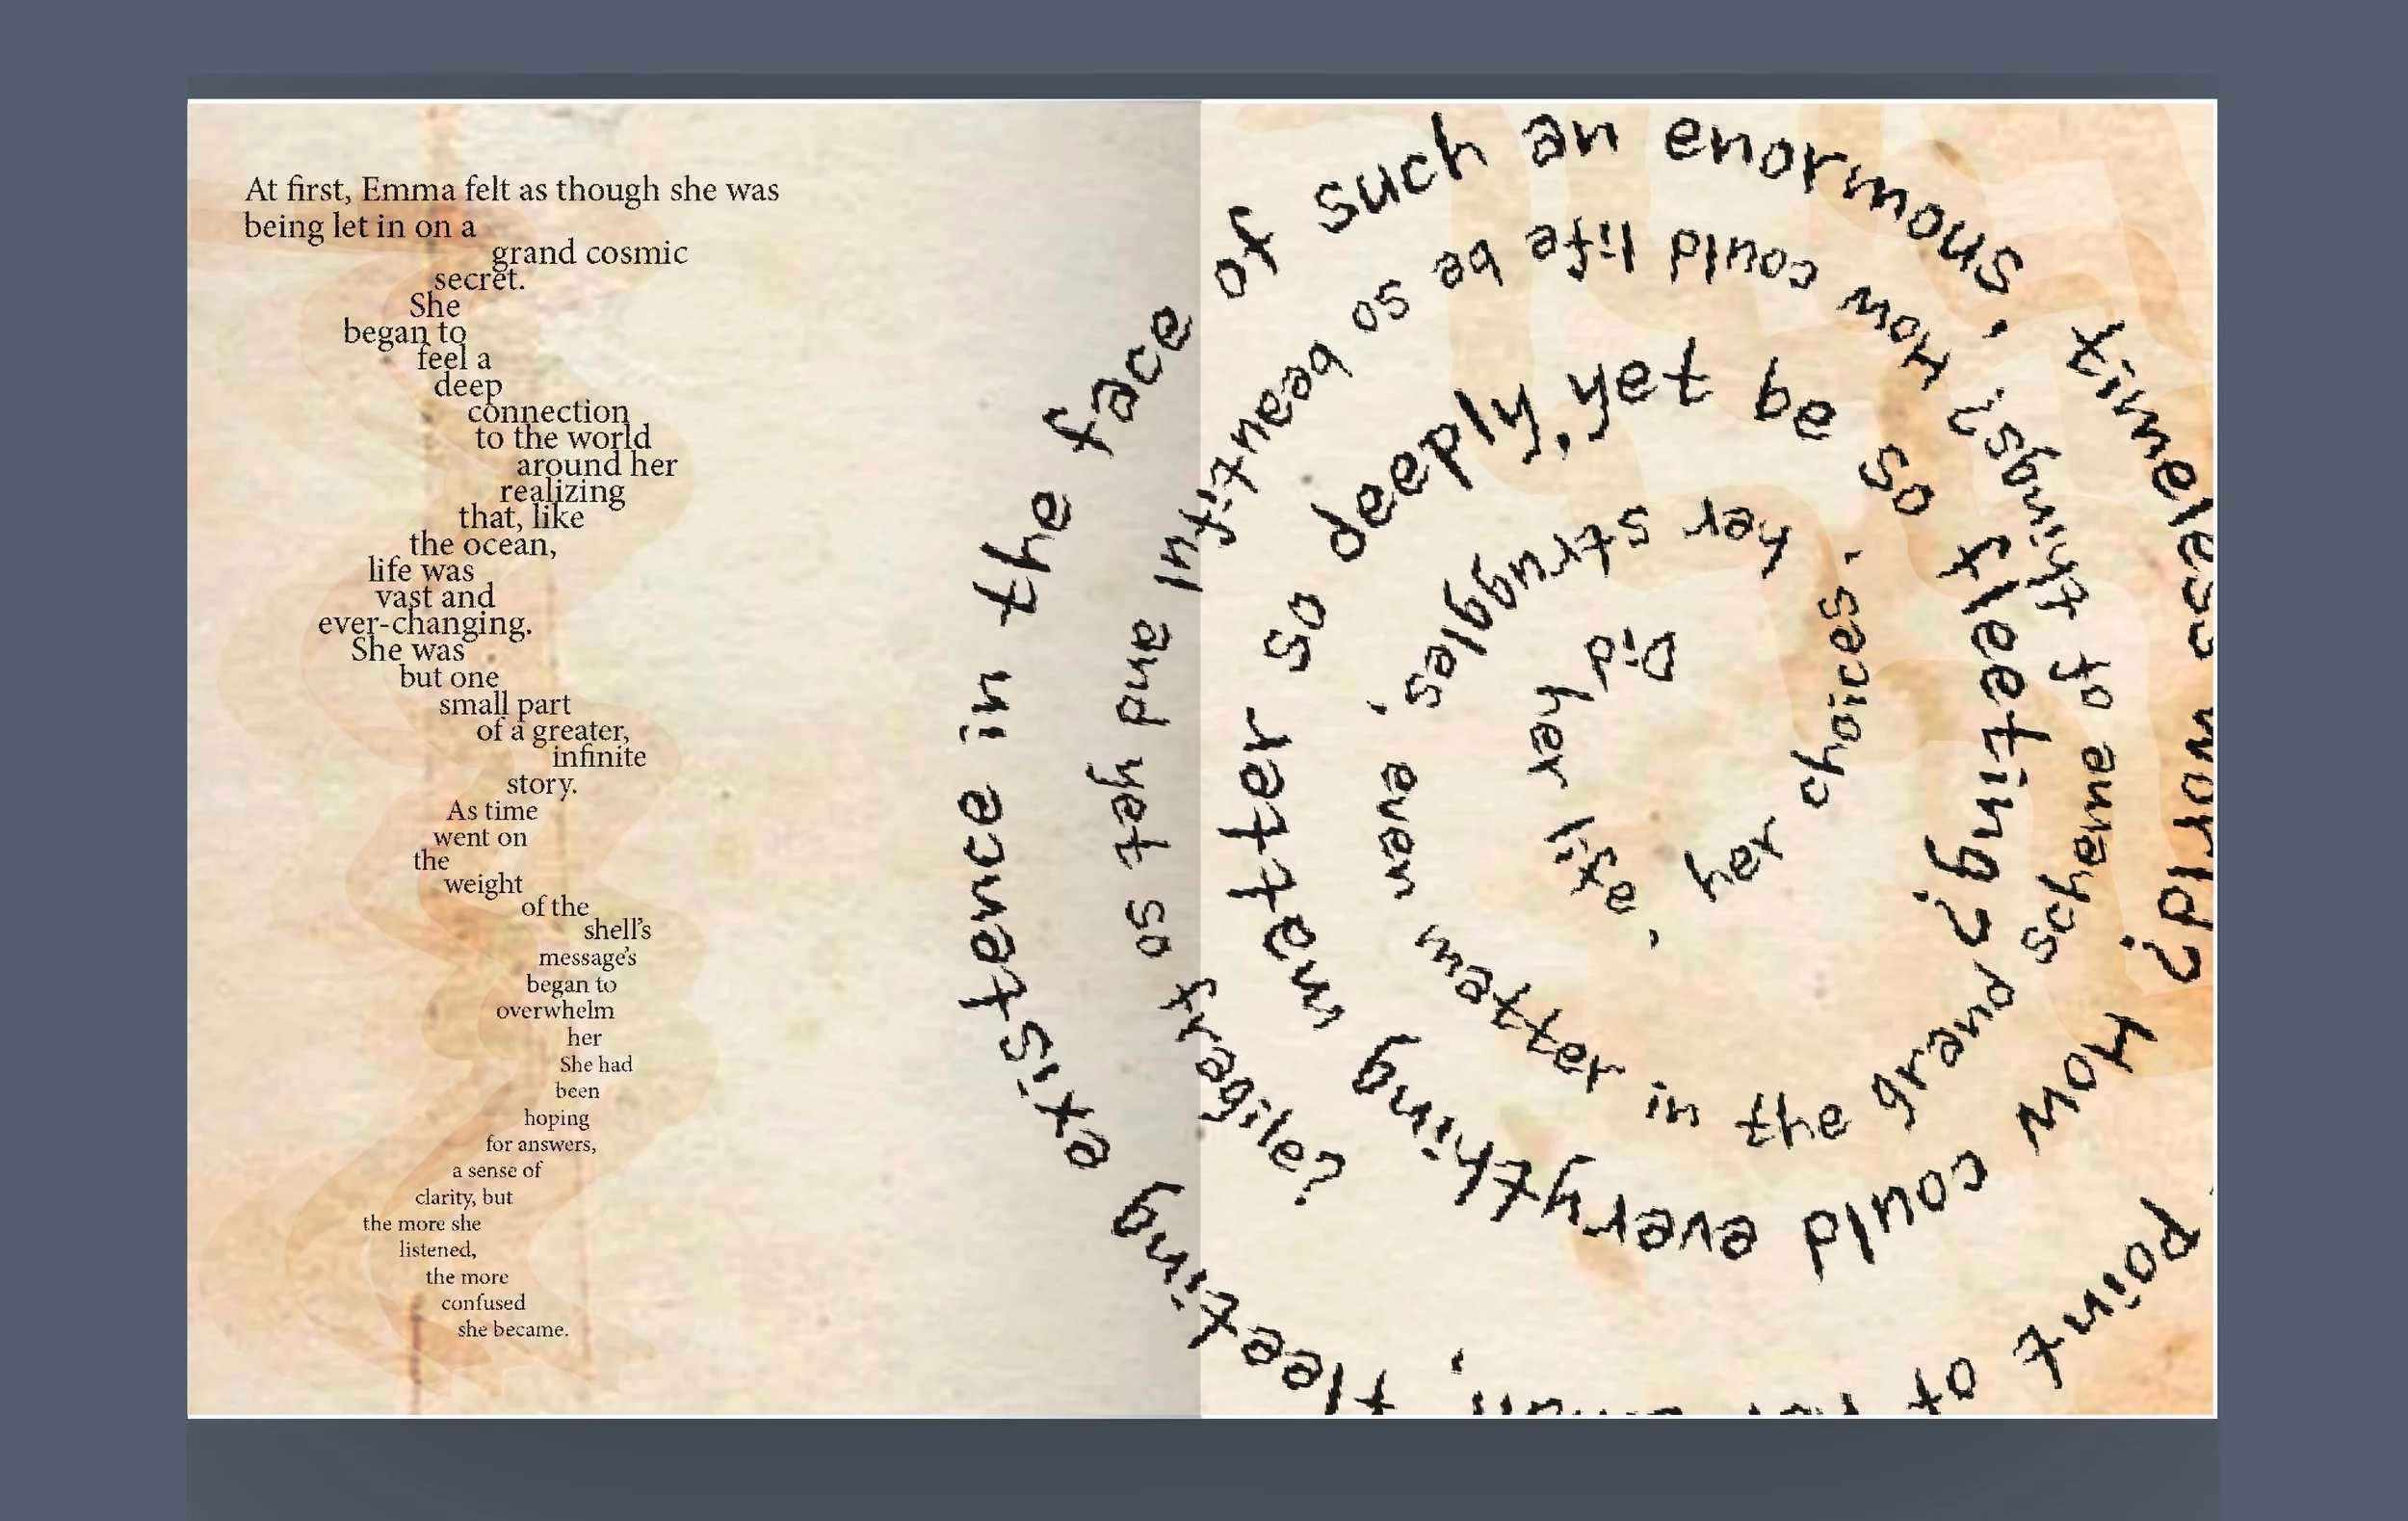 At first, Emma felt as though she was
being let in on a
grand cosmic
secret.
She
began to
feel a
deep
connection
to the world
around her
realizing
that, like
the ocean,
life was
vast and
ever-changing.
She was
but one
small part
of a greater,
infinite
story.
As time
went on
the
weight
of the
shell’s
message’s
began to
overwhelm
her
She had
been
hoping
for answers,
a sense of
clarity, but
the more she
listened,
the more
confused
she became.
Did her life, her choices, her struggles, even matter in the grand scheme of things? How could life be so beautiful and yet so fragile?
How could everything matter so deeply, yet be so fleeting?
point of fleeting existence in the face of such an enormous, timeless world?